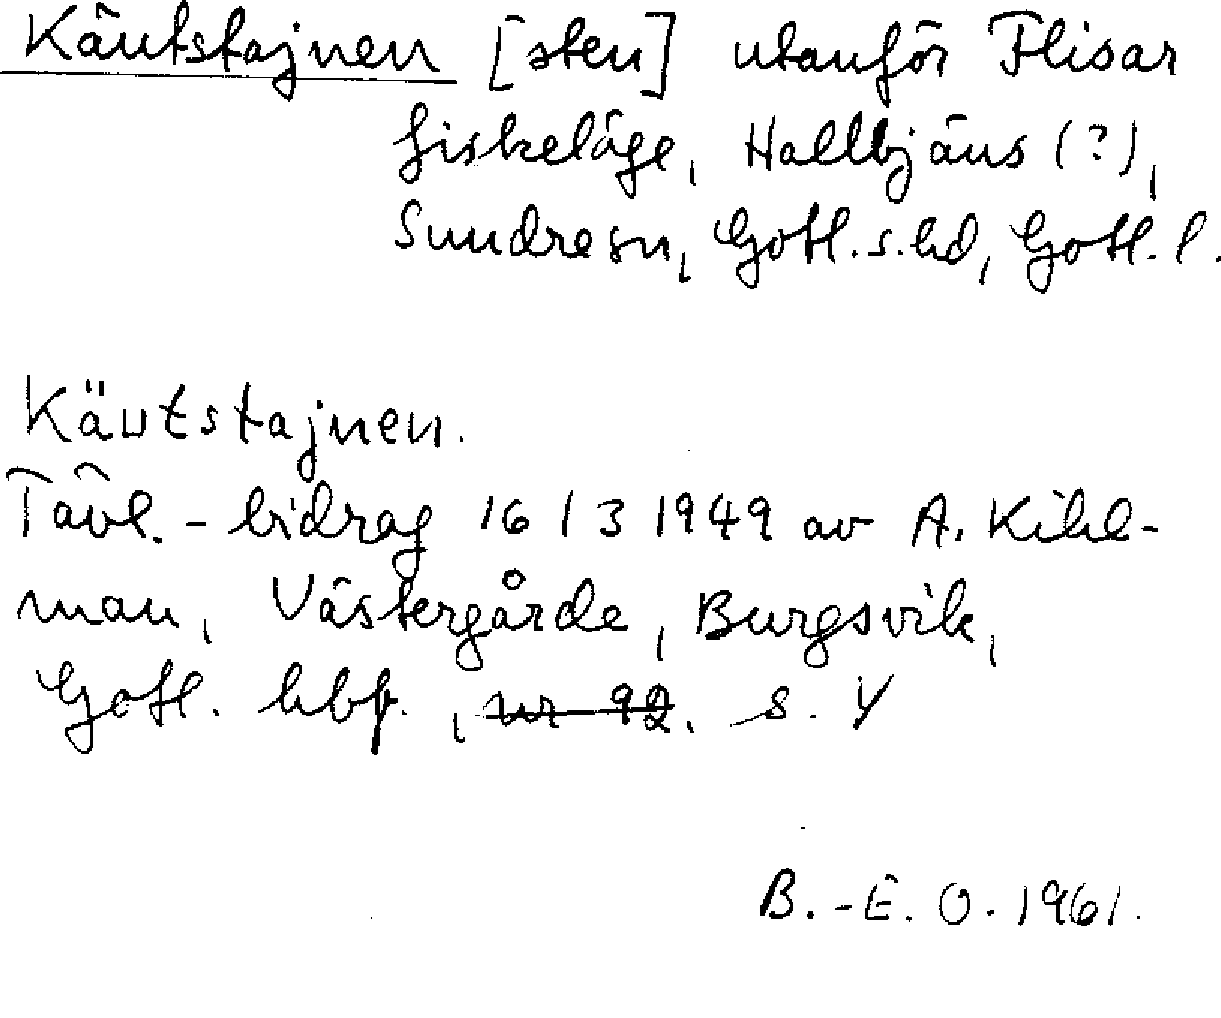 Käutstajnen [sten] utanför Flisar
fiskeläge, Hallbjäns (?),
Sundresn, Gotl. s. hd, Gotl. l.
Käutstajnen.
Tävl. - bidrag 16/3 1949 av A. Kihl-
man, Västergårde, Burgsvik,
Gotl. hbf., nr 92. s. 4
B.-E. O. 1961.